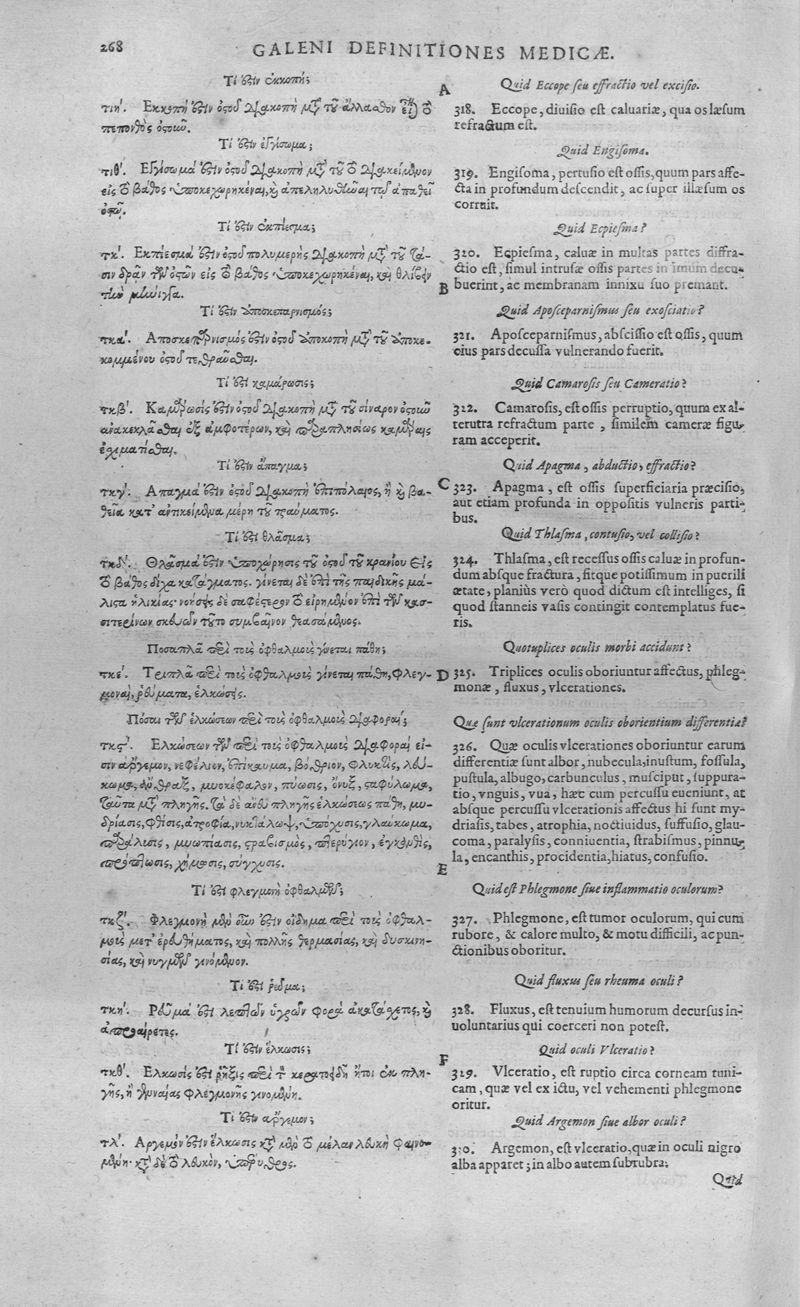 268
GALENI DEFINITIONES MEDICÆ.
Τί ἐστιν ἐκκοπή;
τιηʹ. Εκκοπή ἐστιν ὀστοῦ διακοπὴ μετὰ τοῦ
πεπονθὸς ὀστοῦν.
Τί ἐστιν ἐγγίσωμα;
τιθʹ. Εγγίσωμά ἐστιν ὀστοῦ διακοπὴ μετὰ τοῦ τὸ διακείμενον
εἰς τὸ βάθος ὑποκεχωρηκέναι, καὶ ἀπεληλυθέναι τῷ ἀπαθεῖ
ὀστῷ.
Τί ἐστιν ἐκπίεσμα;
τκʹ. Εκπίεσμά ἐστιν ὀστοῦ πολυμερὴς διακοπὴ μετὰ τοῦ
τῶν ὀστῶν εἰς τὸ βάθος ὑποκεχωρηκέναι, καὶ θλίβειν
τὴν μήνιγγα.
Τί ἐστιν ἀποσκεπαρνισμός;
τκαʹ. Αποσκεπαρνισμός ἐστιν ὀστοῦ ἀποκοπὴ μετὰ τοῦ ἀποκε-
κομμένου ὀστοῦ τεθραῦσθαι.
Τί ἐστι καμάρωσις;
τκβʹ. Καμάρωσίς ἐστιν ὀστοῦ διακοπὴ μετὰ τοῦ ὀστοῦν
ἀνακεκλᾶσθαι ἐξ ἀμφοτέρων, καὶ παραπλησίως καμάραις
ἐσχηματίσθαι.
Τί ἐστι ἄπαγμα;
τκγʹ. Απαγμά ἐστιν ὀστοῦ διακοπὴ ἐπιπόλαιος, ἢ καὶ βα-
θεῖα κατ' ἀντικείμενα μέρη τοῦ τραύματος.
Τί ἐστι θλάσμα;
τκδʹ. Θλάσμά ἐστιν ὑποχώρησις τοῦ ὀστοῦ τοῦ κρανίου εἰς
τὸ βάθος δίχα κατάγματος. γίνεται δὲ ἐπὶ τῆς παιδικῆς μά-
λιστα ἡλικίας· νοήσεις δὲ σαφέστερον τὸ εἰρημένον ἐπὶ τῶν κασ-
σιτερίνων σκευῶν τοῦτο συμβαῖνον θεασάμενος.
Ποσαπλᾶ περὶ τοὺς ὀφθαλμοὺς γίνεται πάθη;
τκεʹ. Τριπλᾶ περὶ τοὺς ὀφθαλμοὺς γίνεται πάθη, φλεγ-
μοναὶ, ῥεύματα, ἑλκώσεις.
Πόσαι τῶν ἑλκώσεων περὶ τοὺς ὀφθαλμοὺς διαφοραί;
τκςʹ. Ελκώσεων τῶν περὶ τοὺς ὀφθαλμοὺς διαφοραὶ εἰ-
σιν ἄργεμον, νεφέλιον, ἐπίκαυμα, βόθριον, φλυκτὶς, λεύ-
κωμα, ἄνθραξ, μυοκέφαλον, πύωσις, ὄνυξ, σταφύλωμα,
ταῦτα μετὰ πληγῆς. τὰ δὲ ἄνευ πληγῆς ἑλκώσεως πάθη, μυ-
δρίασις, φθίσις, ἀτροφία, νυκτάλωψ, ὑπόχυσις, γλαύκωμα,
παράλυσις, μυωπίασις, στραβισμὸς, πτερύγιον, ἐγκανθὶς,
πρόπτωσις, χήμωσις, σύγχυσις.
Τί ἐστι φλεγμονὴ ὀφθαλμῶν;
τκζʹ. Φλεγμονὴ μὲν οὖν ἐστιν οἴδημα περὶ τοὺς ὀφθαλ-
μοὺς μετ' ἐρευθήματος, καὶ πολλῆς θερμασίας, καὶ δυσκινη-
σίας, καὶ νυγμῶν γινόμενον.
Τί ἐστι ῥεῦμα;
τκηʹ. Ρεῦμα ἐστι λεπτῶν ὑγρῶν φορὰ ἀκατάσχετος, καὶ
ἀπροαίρετος.
Τί ἐστιν ἕλκωσις;
τκθʹ. Ελκωσίς ἐστι ῥῆξις περὶ τὸν κερατοειδῆ ἤτοι ἐκ πλη-
γῆς, ἢ γενναίας φλεγμονῆς γινομένη.
Τί ἐστιν ἄργεμον;
τλʹ. Αργεμόν ἐστιν ἕλκωσις κατὰ μὲν τὸ μέλαν λευκὴ φαινο-
μένη· κατὰ δὲ τὸ λευκὸν, ὑπέρυθρος.
A
B
C
D
E
F
Quid Eccope seu effractio vel excisio.
318. Eccope, diuisio est caluariæ, qua os læsum
refractum est.
Quid Engisoma.
319. Engisoma, pertusio est ossis, quum pars affe-
cta in profundum descendit, ac super illæsum os
corruit.
Quid Ecpiesma?
320. Ecpiesma, caluæ in multas partes diffra-
ctio est, simul intrusæ ossis partes in imum decu-
buerint, ac membranam innixu suo premant.
Quid Aposceparnismus seu exosciatio?
321. Aposceparnismus, abscissio est ossis, quum
eius pars decussa vulnerando fuerit.
Quid Camarosis seu Cameratio?
322. Camarosis, est ossis perruptio, quum ex al-
terutra refractum parte, similem cameræ figu-
ram acceperit.
Quid Apagma, abductio, effractio?
323. Apagma, est ossis superficiaria præcisio,
aut etiam profunda in oppositis vulneris parti-
bus.
Quid Thlasma, contusio, vel collisio?
324. Thlasma, est recessus ossis caluæ in profun-
dum absque fractura, fitque potissimum in puerili
ætate, planiùs verò quod dictum est intelliges, si
quod stanneis vasis contingit contemplatus fue-
ris.
Quotuplices oculis morbi accidunt?
325. Triplices oculis oboriuntur affectus, phleg-
monæ, fluxus, vlcerationes.
Quæ sunt vlcerationum oculis oborientium differentiæ?
326. Quæ oculis vlcerationes oboriuntur earum
differentiæ sunt albor, nubecula, inustum, fossula,
pustula, albugo, carbunculus, musciput, suppura-
tio, vnguis, vua, hæc cum percussu eueniunt, at
absque percussu vlcerationis affectus hi sunt my-
driasis, tabes, atrophia, noctiuidus, suffusio, glau-
coma, paralysis, conniuentia, strabismus, pinnu-
la, encanthis, procidentia, hiatus, confusio.
Quid est Phlegmone siue inflammatio oculorum?
327. Phlegmone, est tumor oculorum, qui cum
rubore, & calore multo, & motu difficili, ac pun-
ctionibus oboritur.
Quid fluxus seu rheuma oculi?
328. Fluxus, est tenuium humorum decursus in-
uoluntarius qui coerceri non potest.
Quid oculi Vlceratio?
319. Vlceratio, est ruptio circa corneam tuni-
cam, quæ vel ex ictu, vel vehementi phlegmone
oritur.
Quid Argemon siue albor oculi?
330. Argemon, est vlceratio, quæ in oculi nigro
alba apparet; in albo autem subrubra.
Quid